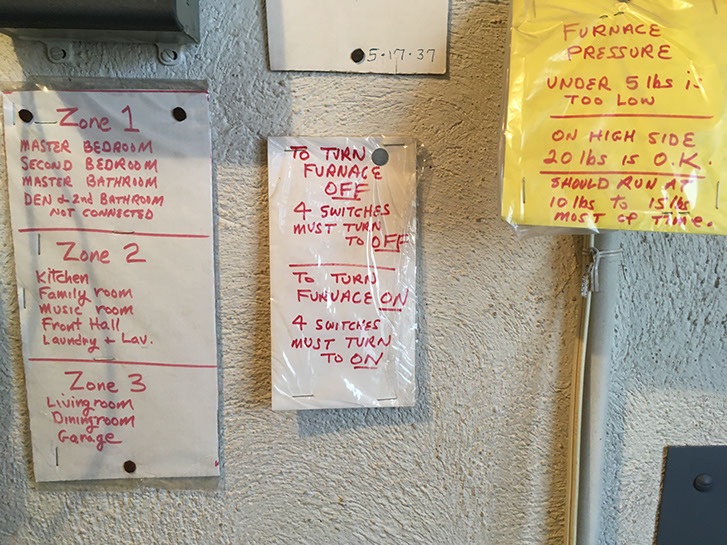 Zone 1
MASTER BEDROOM
SECOND BEDROOM
MASTER BATHROOM
DEN & 2nd BATHROOM
NOT CONNECTED
Zone 2
Kitchen
Family room
Music room
Front Hall
Laundry + Lav.
Zone 3
Livingroom
Diningroom
Garage
5-17-37
TO TURN
FURNACE
OFF
4 SWITCHES
MUST TURN
TO OFF
TO TURN
FURVACE ON
4 SWITCHES
MUST TURN
TO ON
FURNACE
PRESSURE
UNDER 5 lbs is
TOO LOW
ON HIGH SIDE
20 lbs is O.K.
SHOULD RUN AT
10 lbs to 15 lbs
MOST OF TIME.